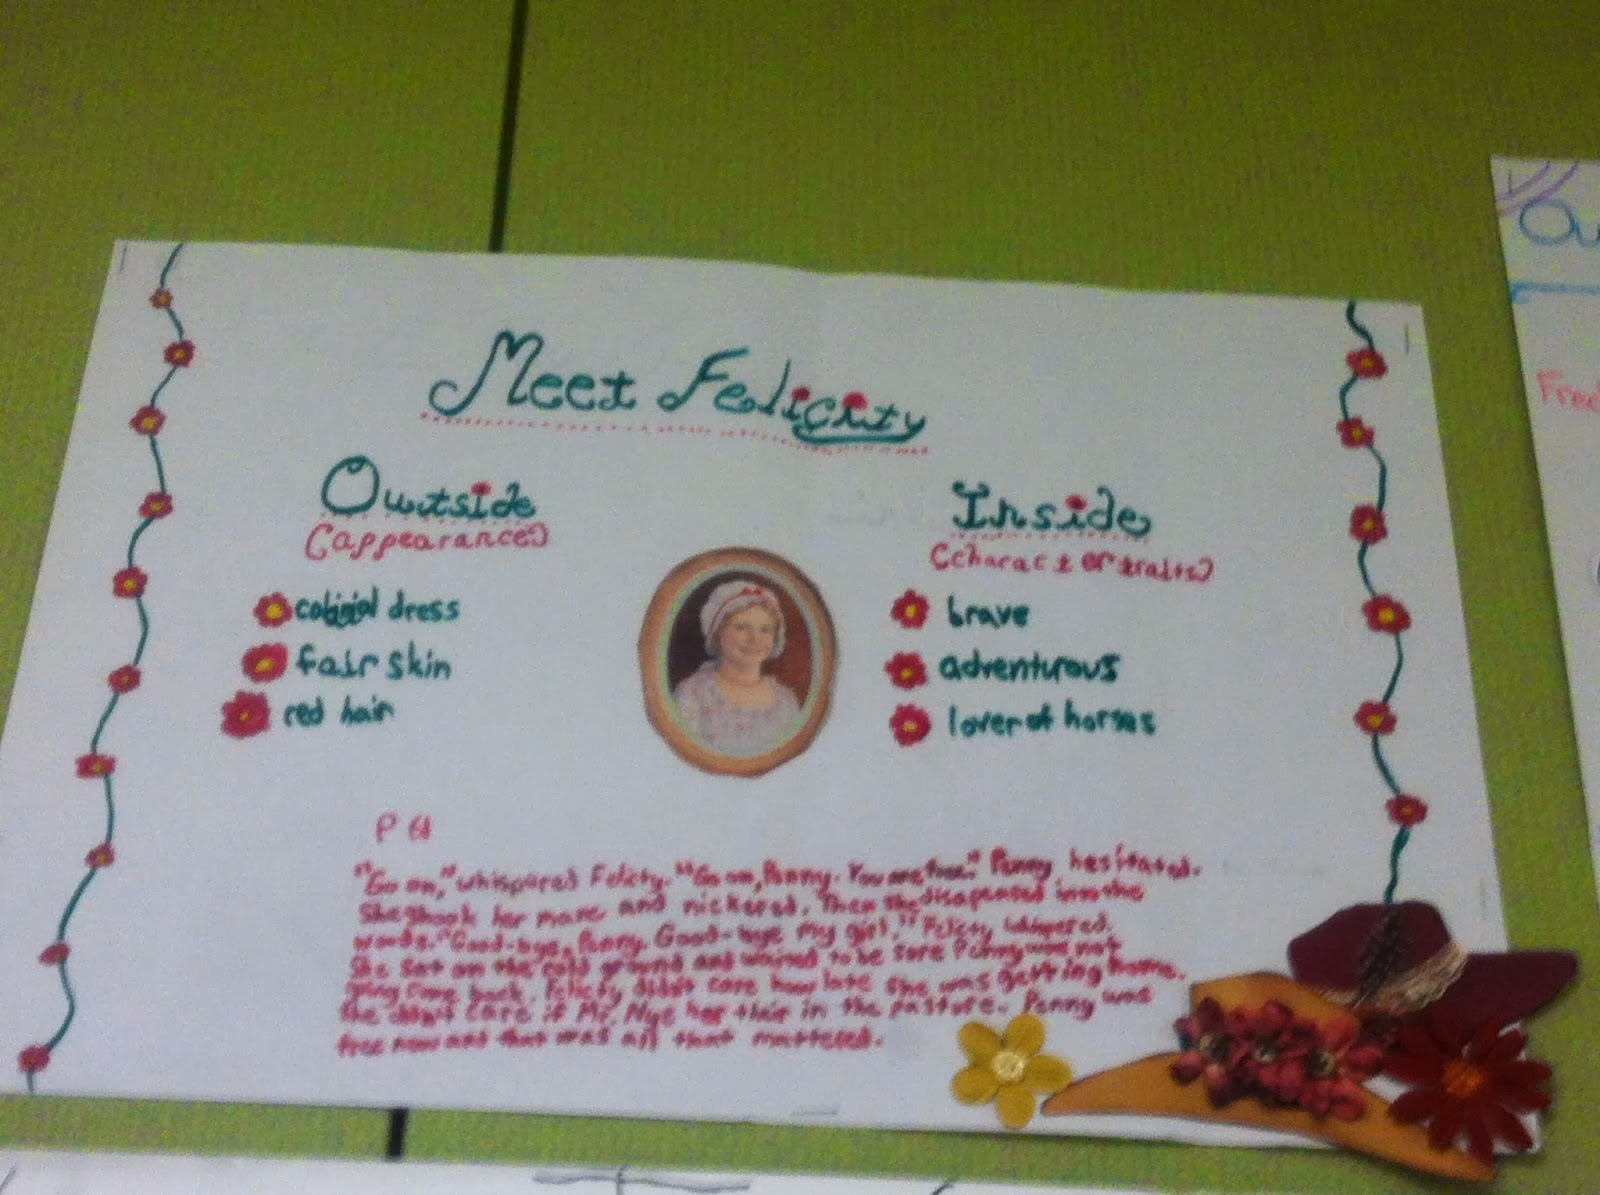 Meet Felicity
Outside
(appearance)
colonial dress
fair skin
red hair
Inside
(character traits)
brave
adventurous
lover of horses
P 61
"Go on," whispered Felicity. "Go on, Penny. You are free." Penny hesitated.
She shook her mane and nickered. Then she disapeared into the
woods. "Good-bye, Penny. Good-bye my girl," Felicity whispered.
She sat on the cold ground and waited to be sure Penny was not
going come back. Felicity didn't care how late she was getting home.
She didn't care if Mr. Nye her in the pasture. Penny was
free now and that was all that mattered.
Ou
Fre